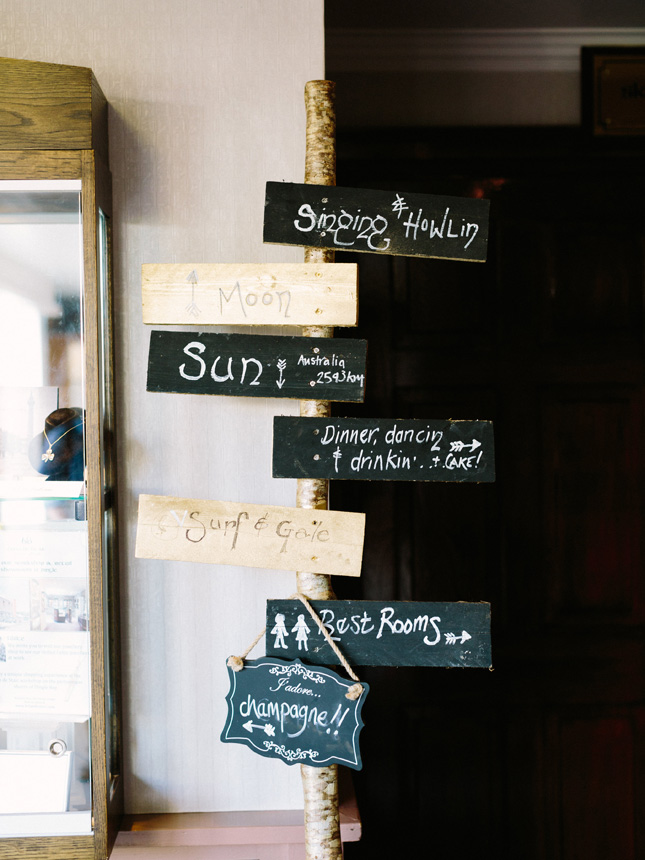 Singing & HowLin
Moon
Sun
Australia
2593km
Dinner, dancin
& drinkin'...+ CAKE!
Surf & Gale
Rest Rooms
J'adore...
champagne!!